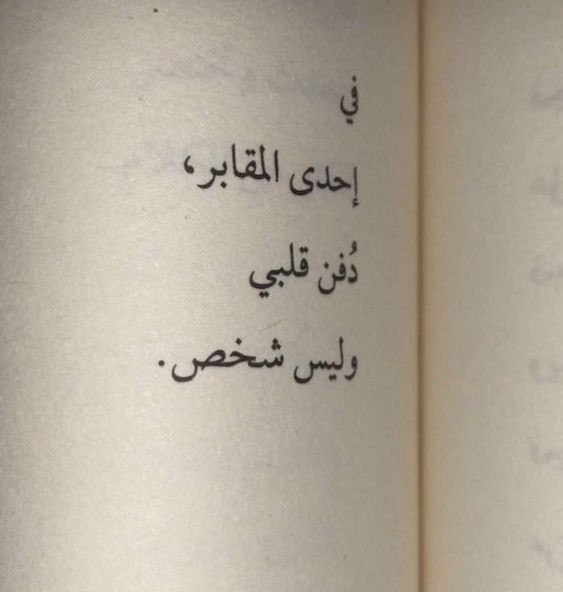 في
إحدى المقابر،
دُفن قلبي
وليس شخص.